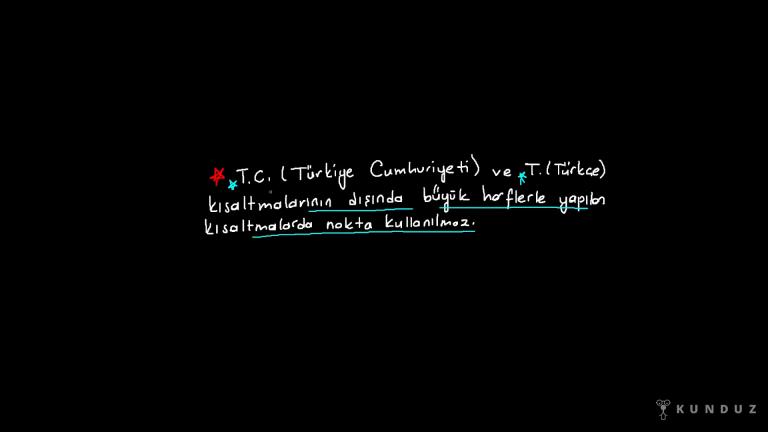 T.C. (Türkiye Cumhuriyeti) ve T. (Türkçe)
kısaltmalarının dışında büyük harflerle yapılan
kısaltmalarda nokta kullanılmaz.
KUNDUZ